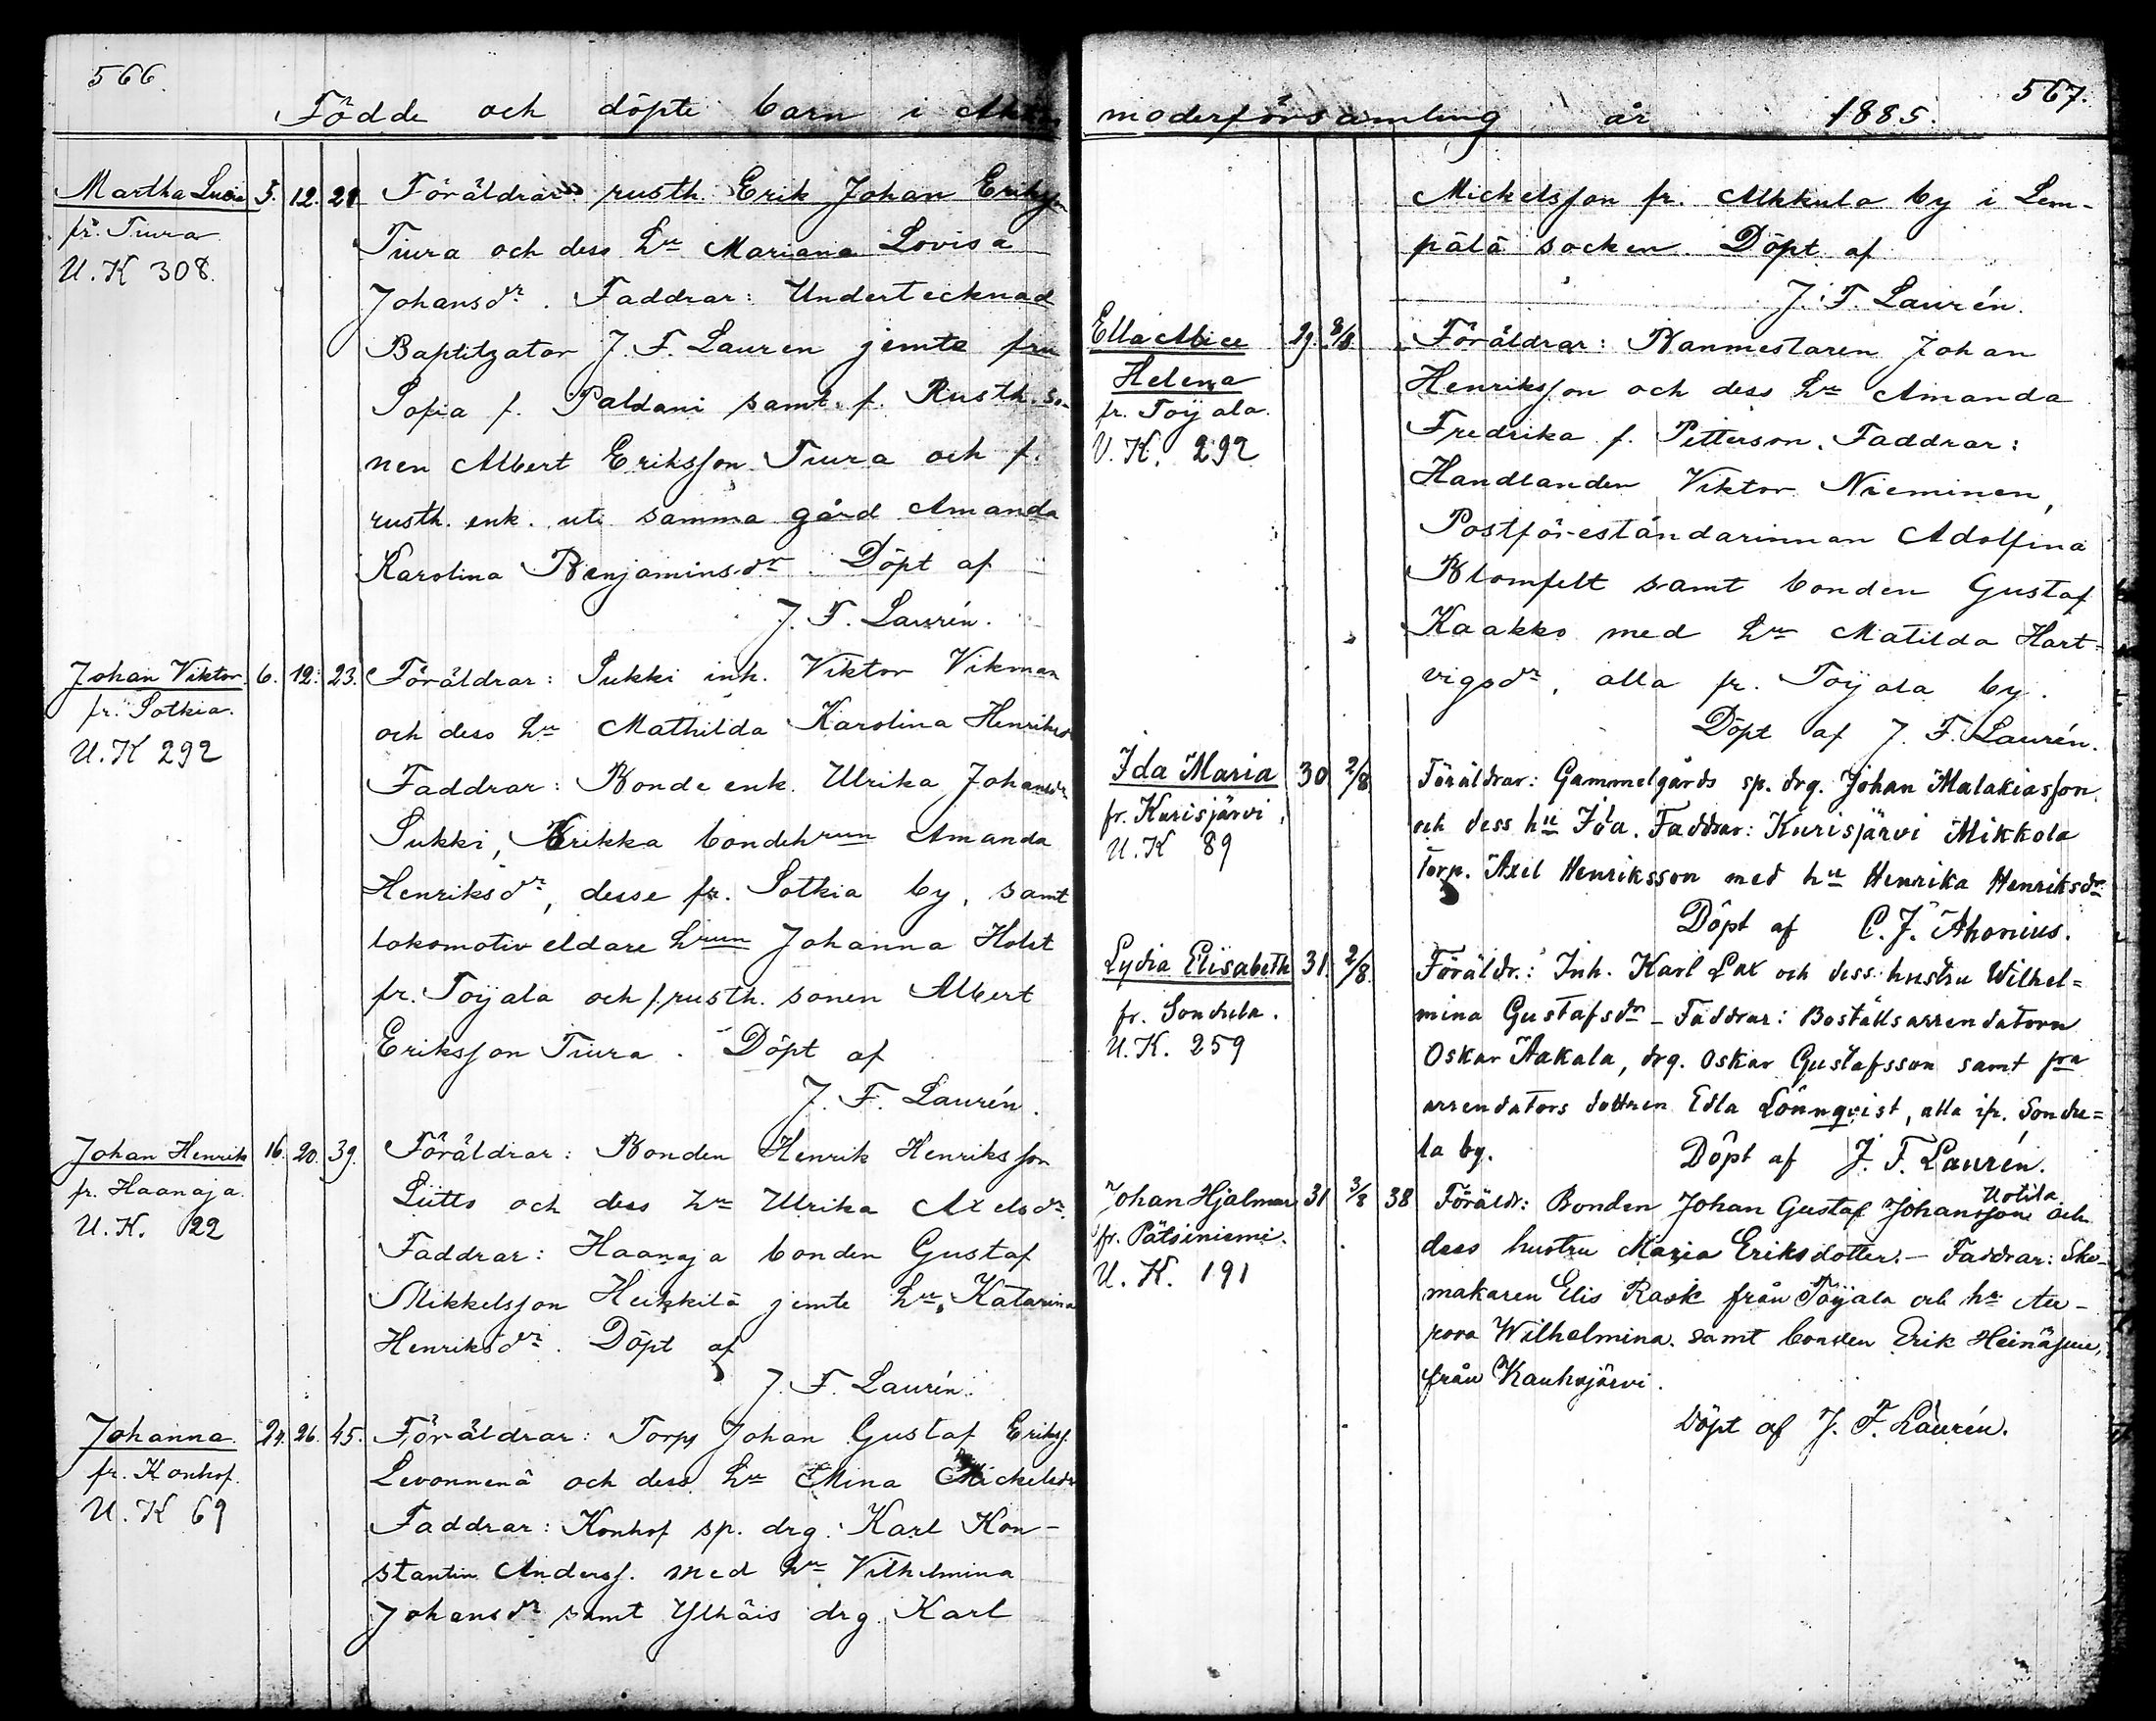 566.
Födde och döpte barn i Akkas
Martha Lucia 5. 12. 21 Föräldrar: rusth. Erik Johan Eriksson
fr. Tiura
U.K 308.
Tiura och dess hu Mariana Lovisa
Johansdr. Faddrar: Undertecknad
Baptizator J. F. Lauren jemte fru
Sofia f. Paldani samt f. Rusth. so-
nen Albert Eriksson Tiura och f.
rusth. enk. uti samma gård Amanda
Karolina Benjaminsdr. Döpt af
J. F. Laurén.
Johan Viktor 6. 12. 23. Föräldrar: Sukki inh. Viktor Vikman
fr. Sotkia.
U.K 292
och dess hu Mathilda Karolina Henriksdr
Faddrar: Bonde enk. Ulrika Johansdr
Sukki, Krikka bondehrun Amanda
Henriksdr, desse fr. Sotkia by, samt
lokomotiv eldare hrun Johanna Holst
fr. Toijala och f. rusth. sonen Albert
Eriksson Tiura. Döpt af
J. F. Laurén.
Johan Henrik 16. 20. 39. Föräldrar: Bonden Henrik Henriksson
fr. Haanaja.
U.K. 22
Liitto och dess hu Ulrika Axelsdr.
Faddrar: Haanaja bonden Gustaf
Mikkelsson Heikkilä jemte hu. Katarina
Henriksdr. Döpt af
J. F. Laurén.
Johanna. 24. 26. 45. Föräldrar: Torp Johan Gustaf Erikss.
fr. Konhof.
U.K 69
Levonnenä och dess hu Mina Mickelsdr
Faddrar: Konhof sp. drg. Karl Kon-
stantin Anderss. med hu Vilhelmina
Johansdr samt Ylhäis drg. Karl
567.
moderförsamling år 1885.
Mickelsson fr. Alkkula by i Lem-
pälä socken. Döpt af
J. F. Laurén.
Ella Alice 29. 8/8. Föräldrar: Banmestaren Johan
Helena
fr. Toijala.
U.K. 292
Henriksson och dess hu Amanda
Fredrika f. Petterson. Faddrar:
Handlanden Viktor Nieminen,
Postföreståndarinnan Adolfina
Blomfelt samt bonden Gustaf
Kaakko med hu Matilda Hart-
vigsdr, alla fr. Toijala by.
Döpt af J. F. Laurén.
Ida Maria 30 2/8 Föräldrar: Gammelgårds sp. drg. Johan Malakiasson
fr. Kurisjärvi,
U.K 89
och dess hu Ida. Faddrar: Kurisjärvi Mikkola
Torp. Axel Henriksson med hu Henrika Henriksdr
Döpt af C. J. Ahonius.
Lydia Elisabeth 31 2/8 Föräldr.: Inh. Karl Lax och dess hustru Wilhel=
fr. Sondula.
U.K. 259
mina Gustafsdr - Faddrar: Boställsarrendatorn
Oskar Aakala, drg. Oskar Gustafsson samt fra
arrendators dottren Edla Lönnqvist, alla fr. Sondu=
la by. Döpt af J. F. Laurén.
Johan Hjalmar 31 3/8 38 Föräldr: Bonden Johan Gustaf Johansson Uotila och
fr. Pätsiniemi.
U.K. 191
dess hustru Maria Eriksdotter. - Faddrar: Sko-
makaren Elis Rask från Toijala och hu Au-
rora Wilhelmina samt bonden Erik
från
Döpt af J. F. Laurén.